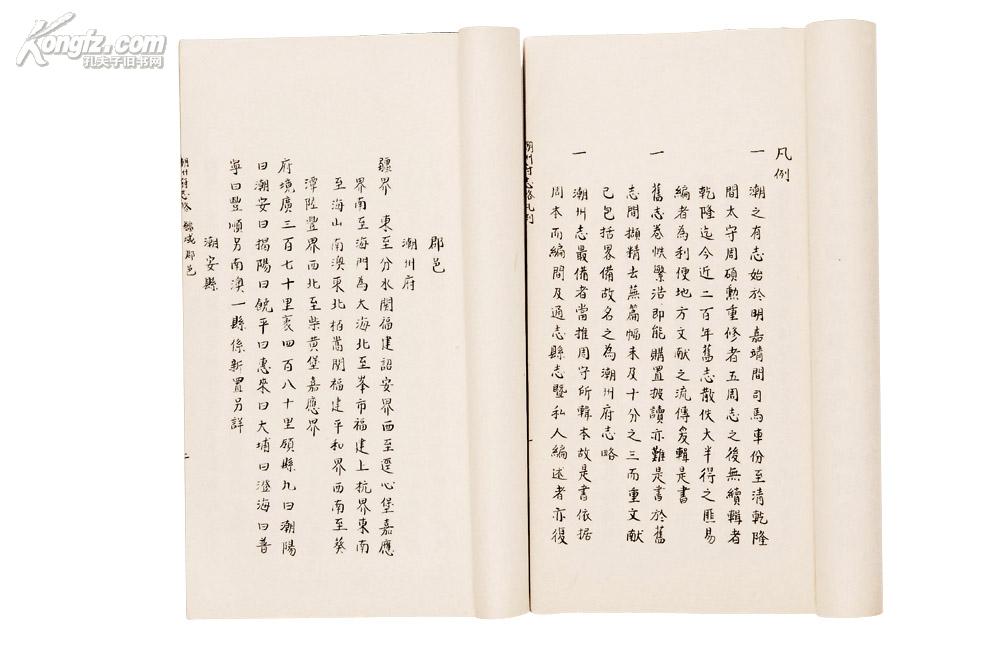 Kongfz.com
孔夫子旧书网
凡例
一 潮之有志始於明嘉靖間司馬車份至清乾隆
間太守周碩勲重修者五周志之後無續輯者
乾隆迄今近二百年舊志散佚大半得之匪易
編者為利便地方文献之流傳爰輯是書
一 舊志卷帙繁浩即能購置披讀亦難是書於舊
志間擷精去蕪篇幅未及十分之三而重文献
已包括畧備故名之為潮州府志略
一 潮州志最備者當推周守所輯本故是書依据
周本而編間及通志縣志暨私人編述者亦復
潮州府志略凡例
一
郡邑
潮州府
疆界 東至分水関福建詔安界西至逕心堡嘉應
界南至海門為大海北至峯市福建上杭界東南
至海山南澳東北栢嵩関福建平和界西南至葵
潭陸豐界西北至柴黄堡嘉應界
府境廣三百七十里袤四百八十里領縣九曰潮陽
曰潮安曰揭陽曰饒平曰惠來曰大埔曰澄海曰普
寧曰豐順另南澳一縣係新置另詳
潮安縣
潮州府志略 郡邑